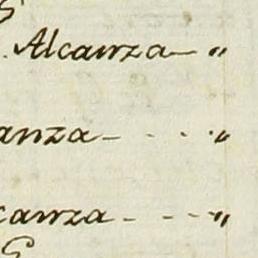 . Alcanza — "
anza - . . . "
canza - - - - "